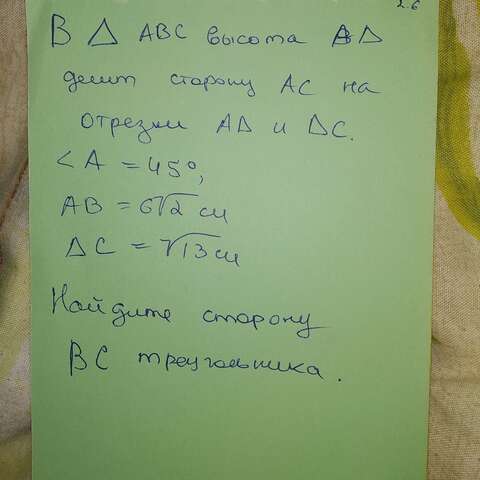 2.6
В △ АВС высота ВД
делит сторону АС на
отрезки АД и ДС.
<А = 45°,
АВ = 6√2 см
ДС = √13 см
Найдите сторону
ВС треугольника.